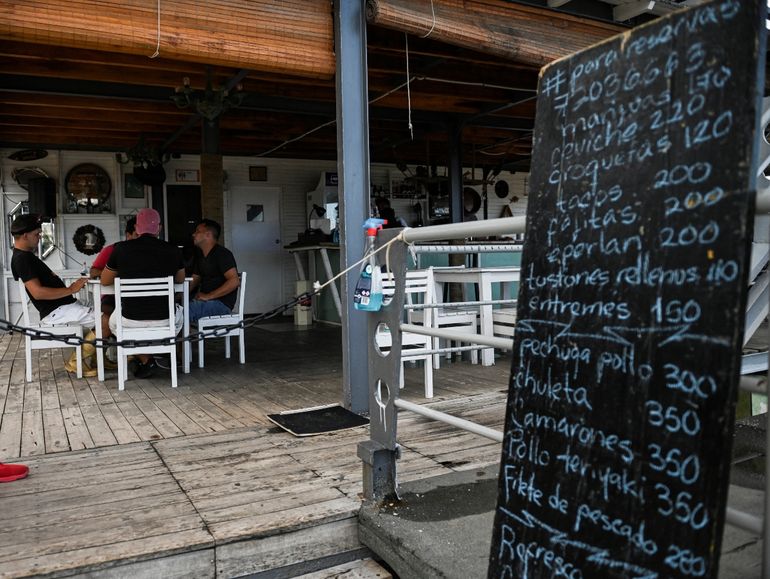 # para reservas
72036663
mariquitas 170
ceviche 220
croquetas 120
tacos 200
rajitas 200
eperlan 200
tostones rellenos 110
entremes 150
pechuga pollo 300
chuleta 350
camarones 350
Pollo teriyaki 350
Filete de pescado 280
Refresco